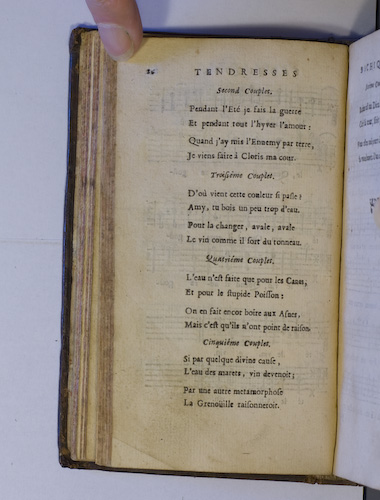 TENDRESSES
Second Couplet.
Pendant l'Eté je fais la guerre
Et pendant tout l'hyver l'amour :
Quand j'ay mis l'Ennemy par terre,
Je viens faire à Cloris ma cour.
Troisiéme Couplet.
D'où vient cette couleur si pasle ?
Amy, tu bois un peu trop d'eau.
Pour la changer, avale, avale
Le vin comme il sort du tonneau.
Quatriéme Couplet.
L'eau n'est faite que pour les Canes,
Et pour le stupide Poisson :
On en fait encor boire aux Asnes,
Mais c'est qu'ils n'ont point de raison.
Cinquiéme Couplet.
Si par quelque divine cause,
L'eau des marets, vin devenoit ;
Par une autre metamorphose
La Grenoüille raisonneroit.